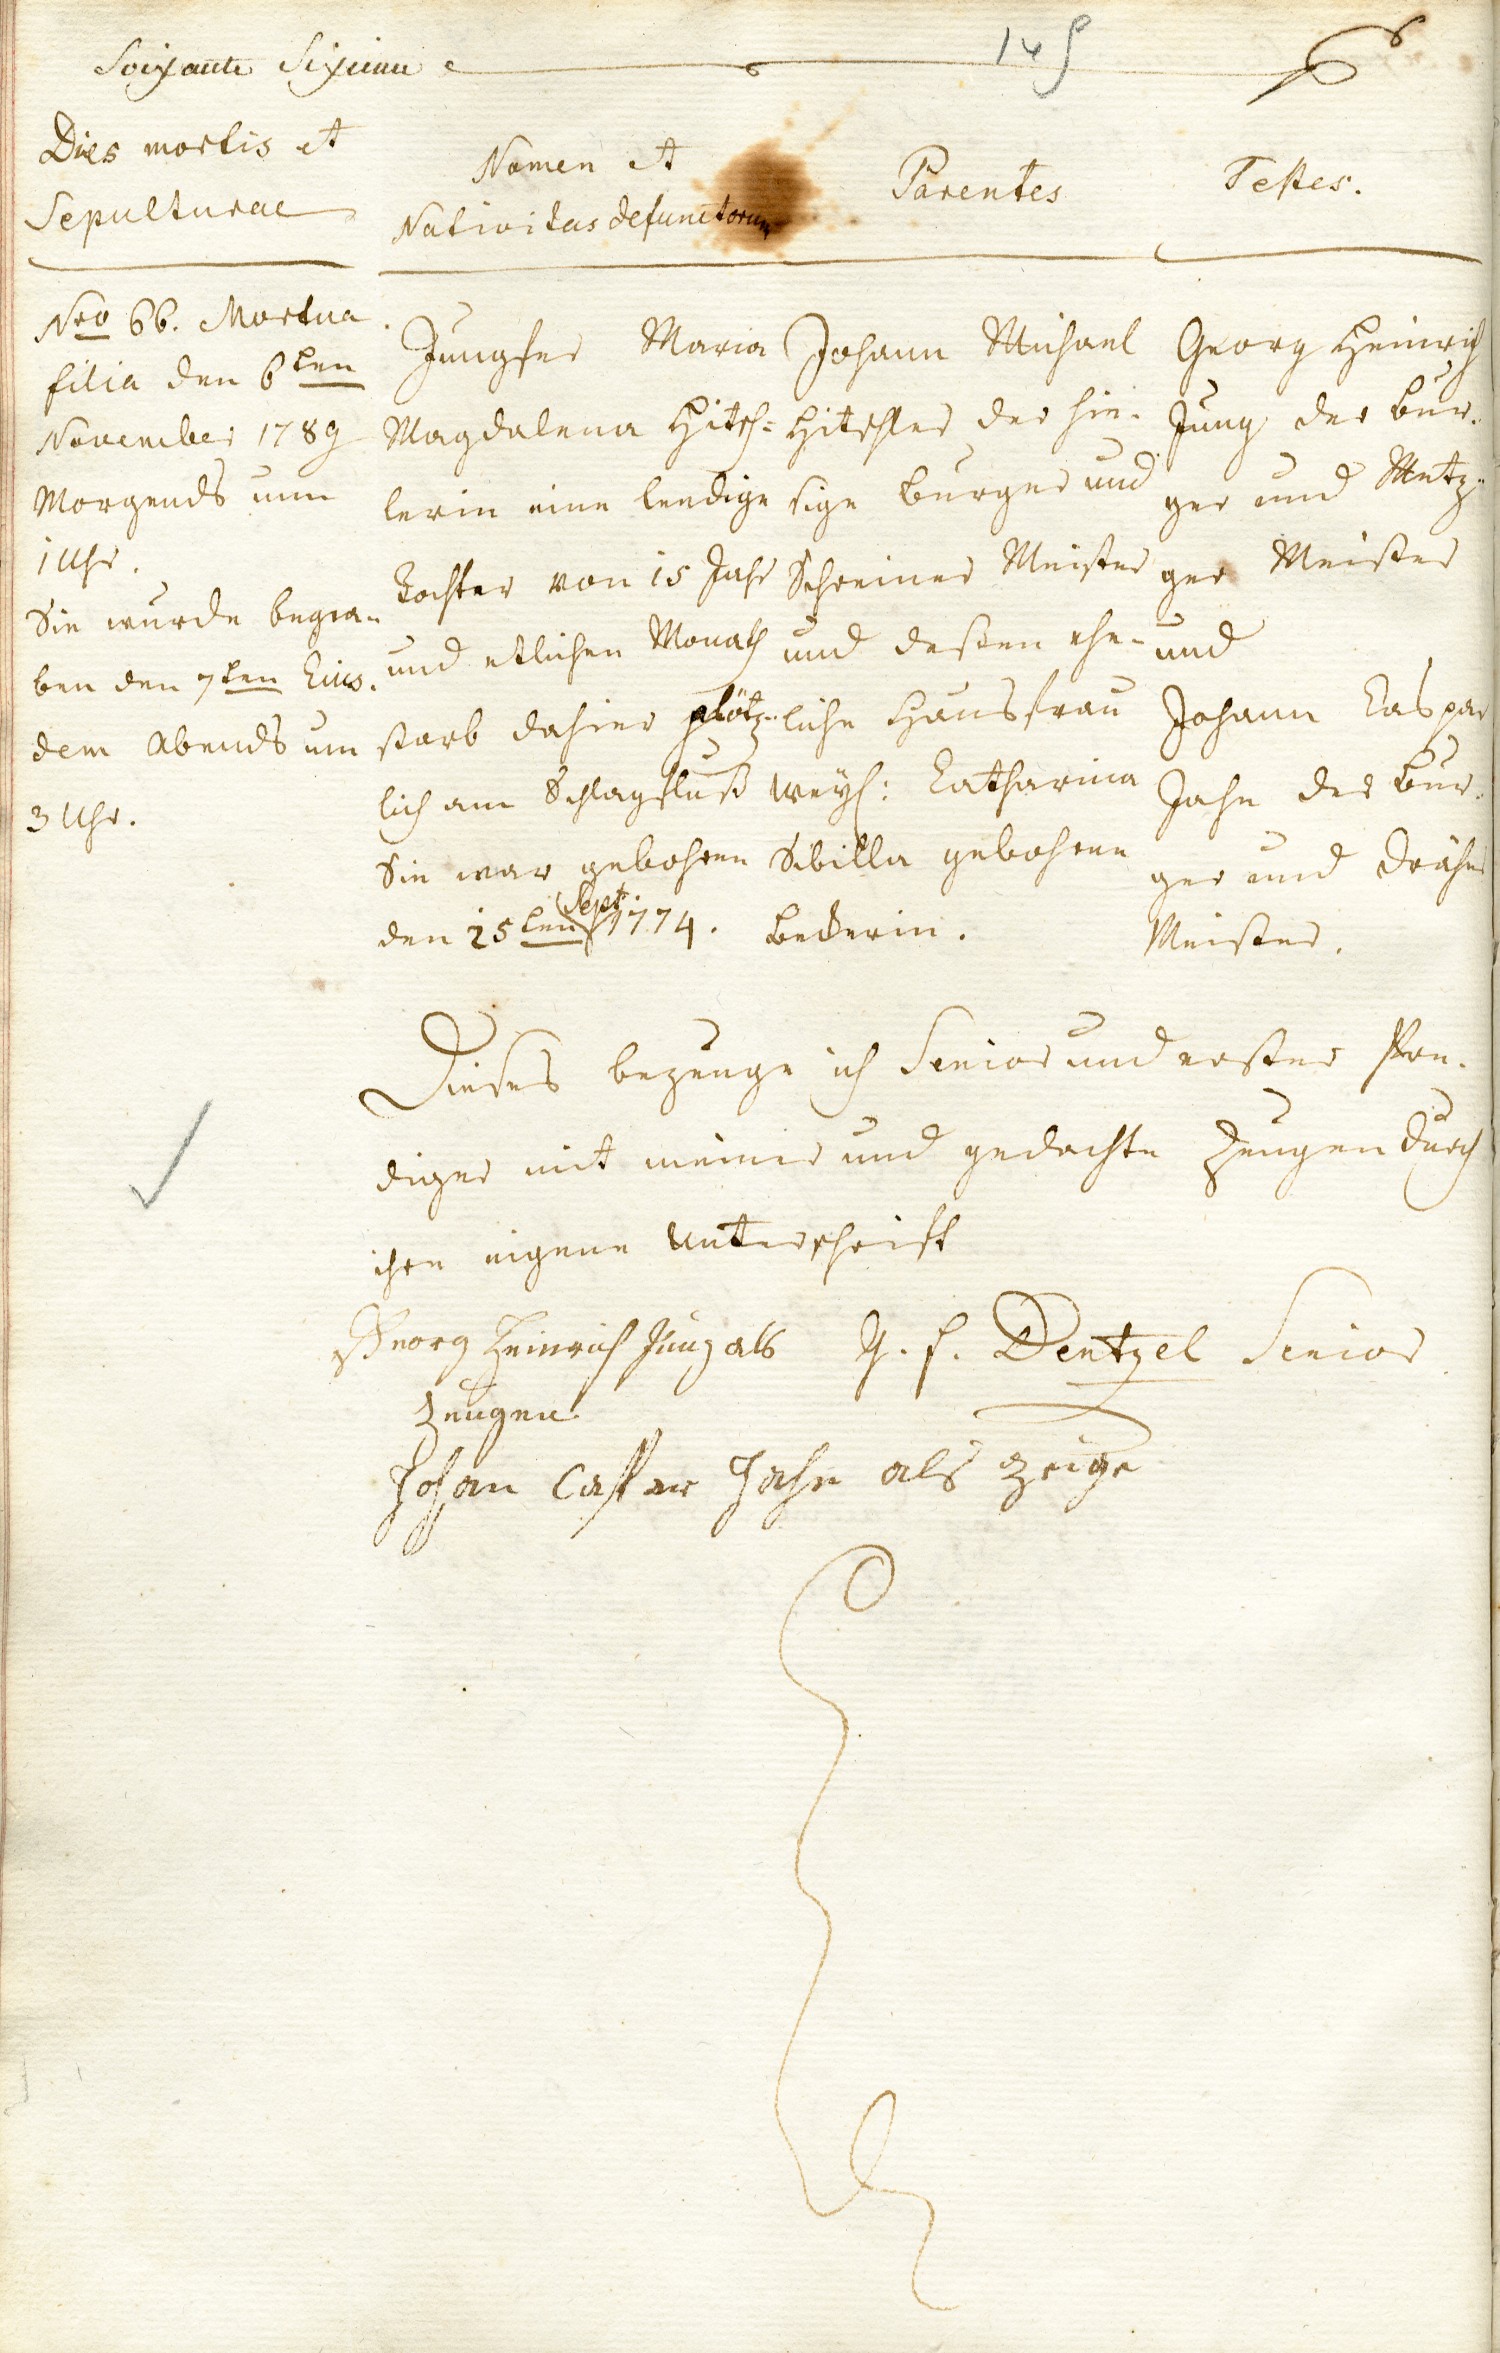 Soixante Sixieme
149
Dies mortis et
Sepulturae
Nomen et
Nativitas defunctorum
Parentes
Testes.
Nro 66. Mortua
filia den 6ten
November 1789
Morgends um
1 Uhr.
Sie wurde begra-
ben den 7ten Eius-
dem Abends um
3 Uhr.
Jungfer Maria
Magdalena Hitsch=
lerin eine leedige
Tochter von 15 Jahr
und etlichen Monath
starb dahier plötz-
lich am Schlagfluß
Sie war gebohren
den 25ten Sept. 1774.
Johann Michael
Hitschler der hie-
sige Burger und
Schreiner Meister
und deßen ehe-
liche Hausfrau
weyl: Catharina
Sibilla gebohrene
Beckerin.
Georg Heinrich
Jung der Bur-
ger und Metz-
ger Meister
und
Johann Caspar
Jahn der Bur-
ger und Dräher
Meister.
Dieses bezeuge ich Senior und erster Pre-
diger mit meiner und gedachte Zeugen durch
ihre eigene Unterschrift
Georg Heinrich Jung als
Zeugen
G. F. Dentzel Senior
Johan Casper Jahn als Zeige